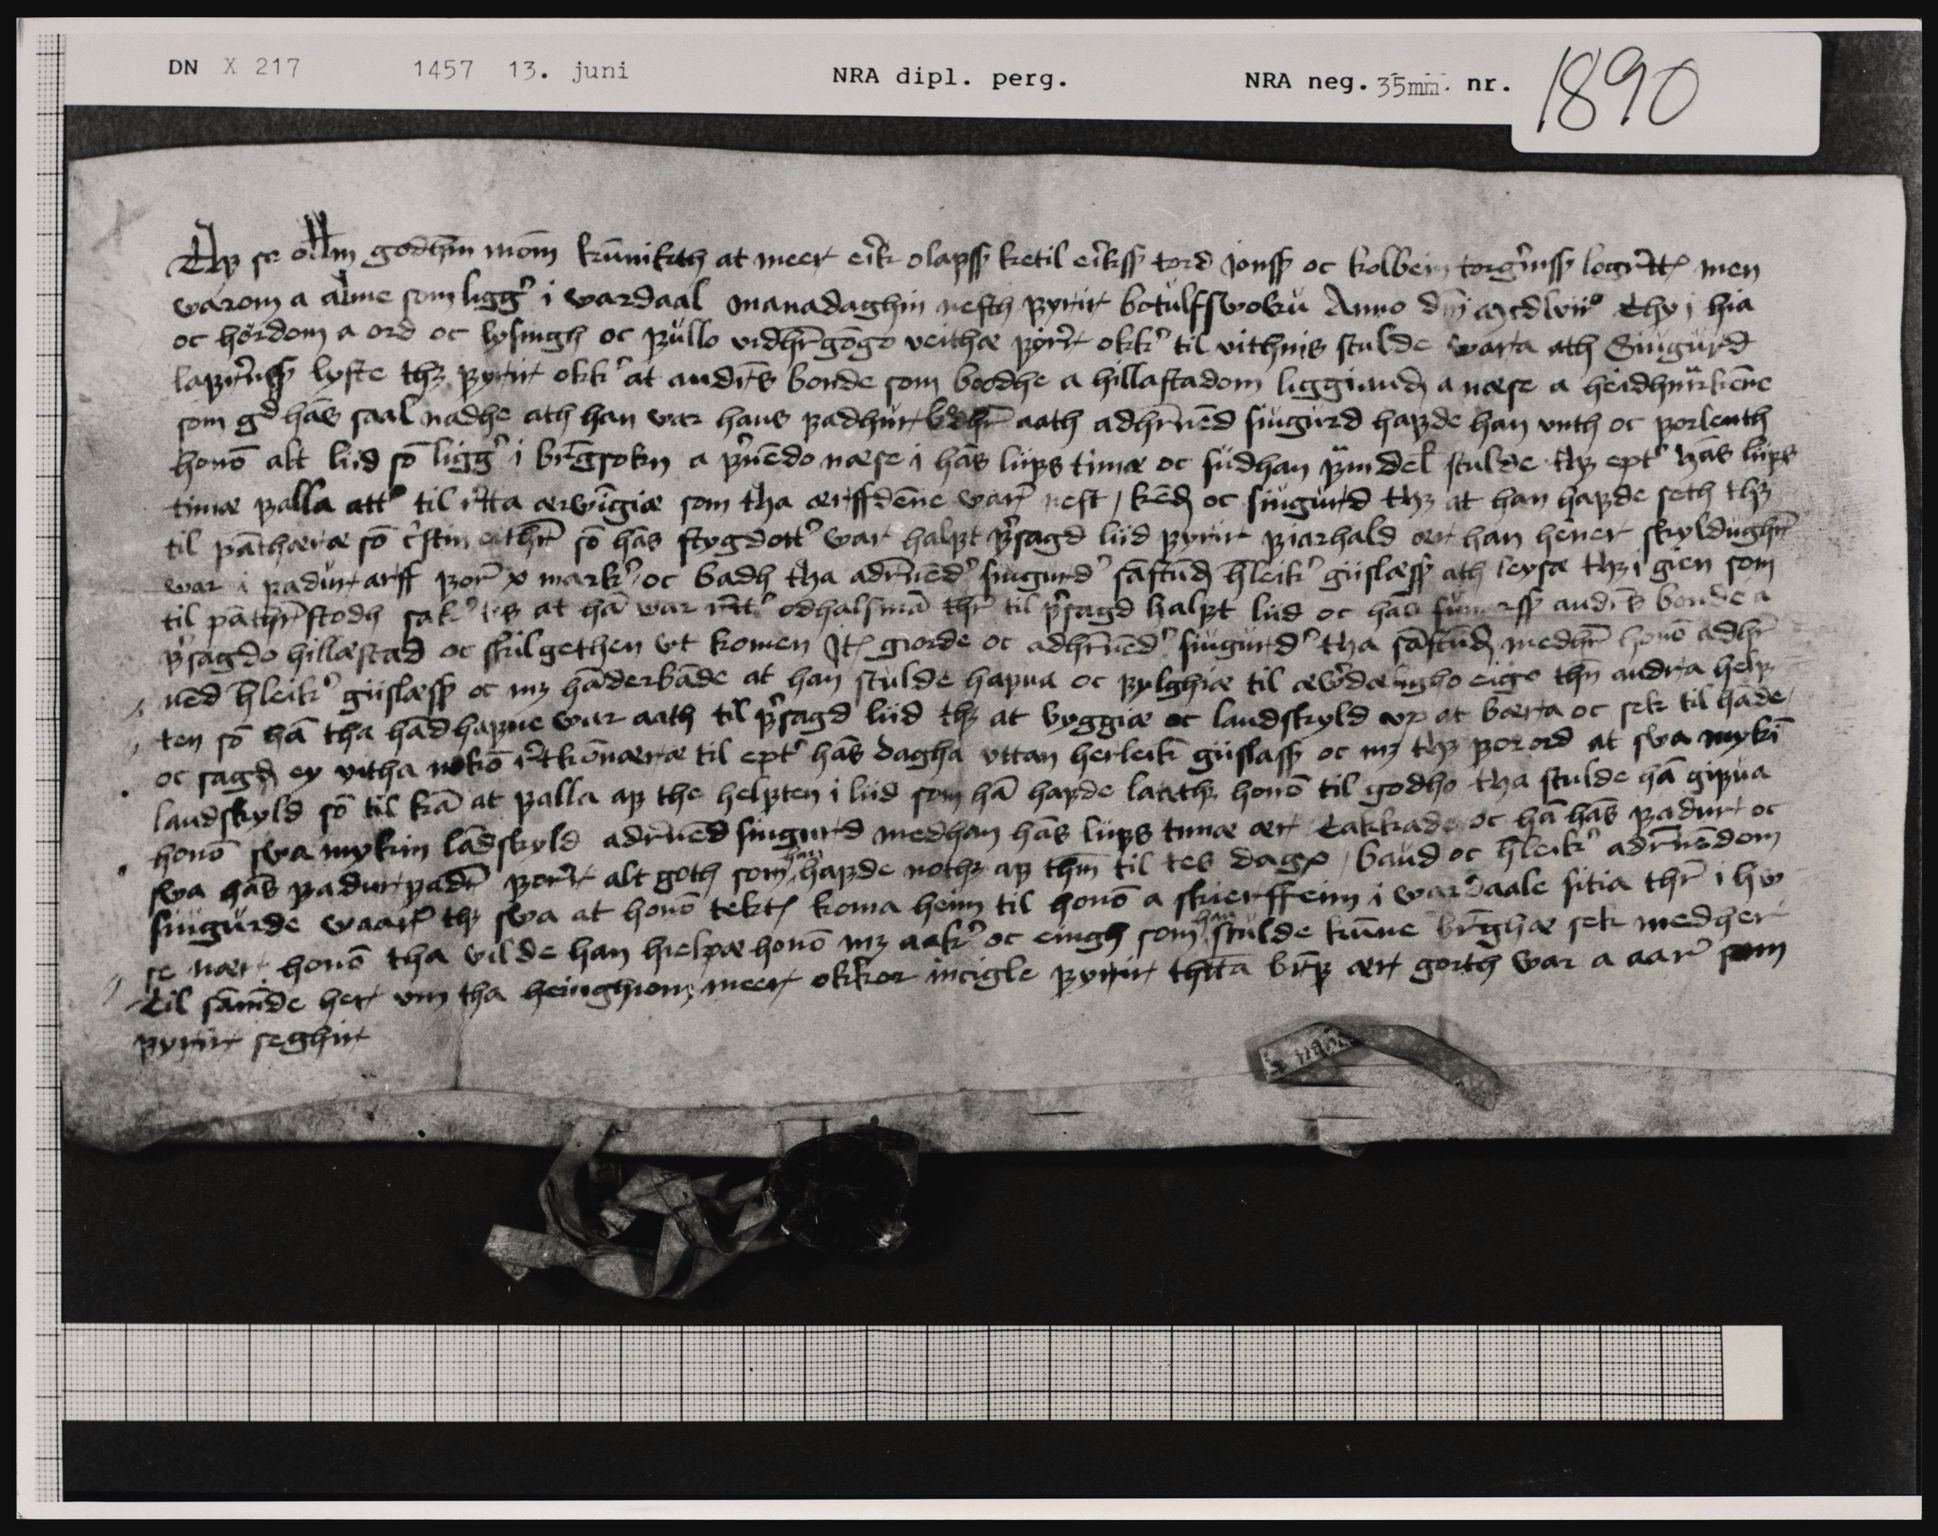 DN X 217 1457 13. juni NRA dipl. perg. NRA neg. 35mm. nr. 1890
Thz se ollm godhm mom kunnikth at meer eirk olafss ketil eirkss tord jonss oc kolbein torgrimss logrett men
warom a alme som ligger i wardaal manadaghin nesth fyrir botulfswoku Anno dni mcdlvii° Thy i hia
oc hördom a ord oc lysingh oc fullo vidhrgōgo veithæ fyrir okkr til vithnis skulde wara ath Siugurd
lafrenss lyste thz fyrir okkr at andrs bonde som bodhe a hillastadom liggiandh a næse a heidhmarkēne
som gd hās saal nadhe ath han war hans fadhur bdhr aath adhrnēd siugurd hafde han vnth oc forlenth
honō alt liid sō liggr i brgsokn a frnēdo næse i hās liifs timæ oc sidhan hm del skulde thz eptr hās liifs
timæ falla attr til retta ærwīgiæ som tha ærffdēne warr nest, kēdh oc siugurd thz at han hafde seth thz
til pāthæræ sō cstin eithr sō hās stygdottr war halft frsagd liid fyrir fiarhald ær han hener skyldughr
war i fadur arff forr x markr oc badh tha adrnēdr siugurdr sāstūdh hleikr giislæss ath leysæ thz i gien som
til pāthr stodh sakr tes at hā war rettr odhalsmā thr til frsagd halft liid oc hās andrs bonde a
frsagdo hillæstad oc skilgethen vt komen Jt giorde oc adhrnēdr siugurdr tha sāstūdh medhr honō adhr
nēd hleikr giislæss oc mz hāderbāde at han skulde hafua oc fylghiæ til æwerdæligho eigo thn andra helf
ten sō hā tha hādhafue war aath til frsagd liid thz at byggiæ oc landskyld vp at bæra oc sek til hāde
oc sagdh ey vitha nokō rētkōnæræ til eptr hās dagha vttan herleik giislass oc mz thz forord at swa mykī
landskyld sō til kā at falla af the helften i liid som hā hafde latith honō til godho tha skulde hā gifua
honō swa mykin lādskyld adrnēd siugurd medhan hās liifs timæ ær Takkade oc hā hās fadur oc
swa hās fadurfadr forer alt goth som han hafde noth af thm til tes dagx, baud oc hleikr adrnēdom
siugurde waarr thz swa at honō tekth koma heim til honō a skierffeim i wardaale sitia thr i hw
se nær honō tha vilde han hielpæ honō mz aakr oc eingh som han skulde kunne brghæ sek medher
Til sānīde her vm tha heinghiom meer okkor incigle fyrir thtta brf ær gorth war a aar som
fyrir seghir